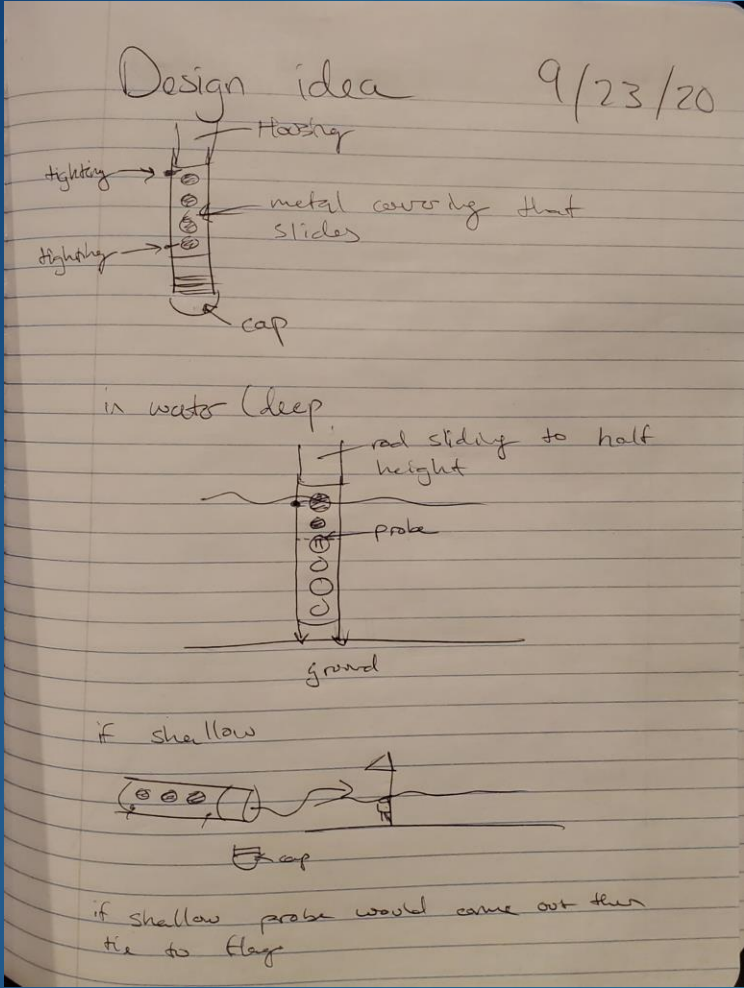 Design idea 9/23/20
Housing
tighting
metal covering that
slides
tighting
cap
in water (deep
rod sliding to half
height
probe
ground
if shallow
cap
if shallow probe would come out then
tie to flag